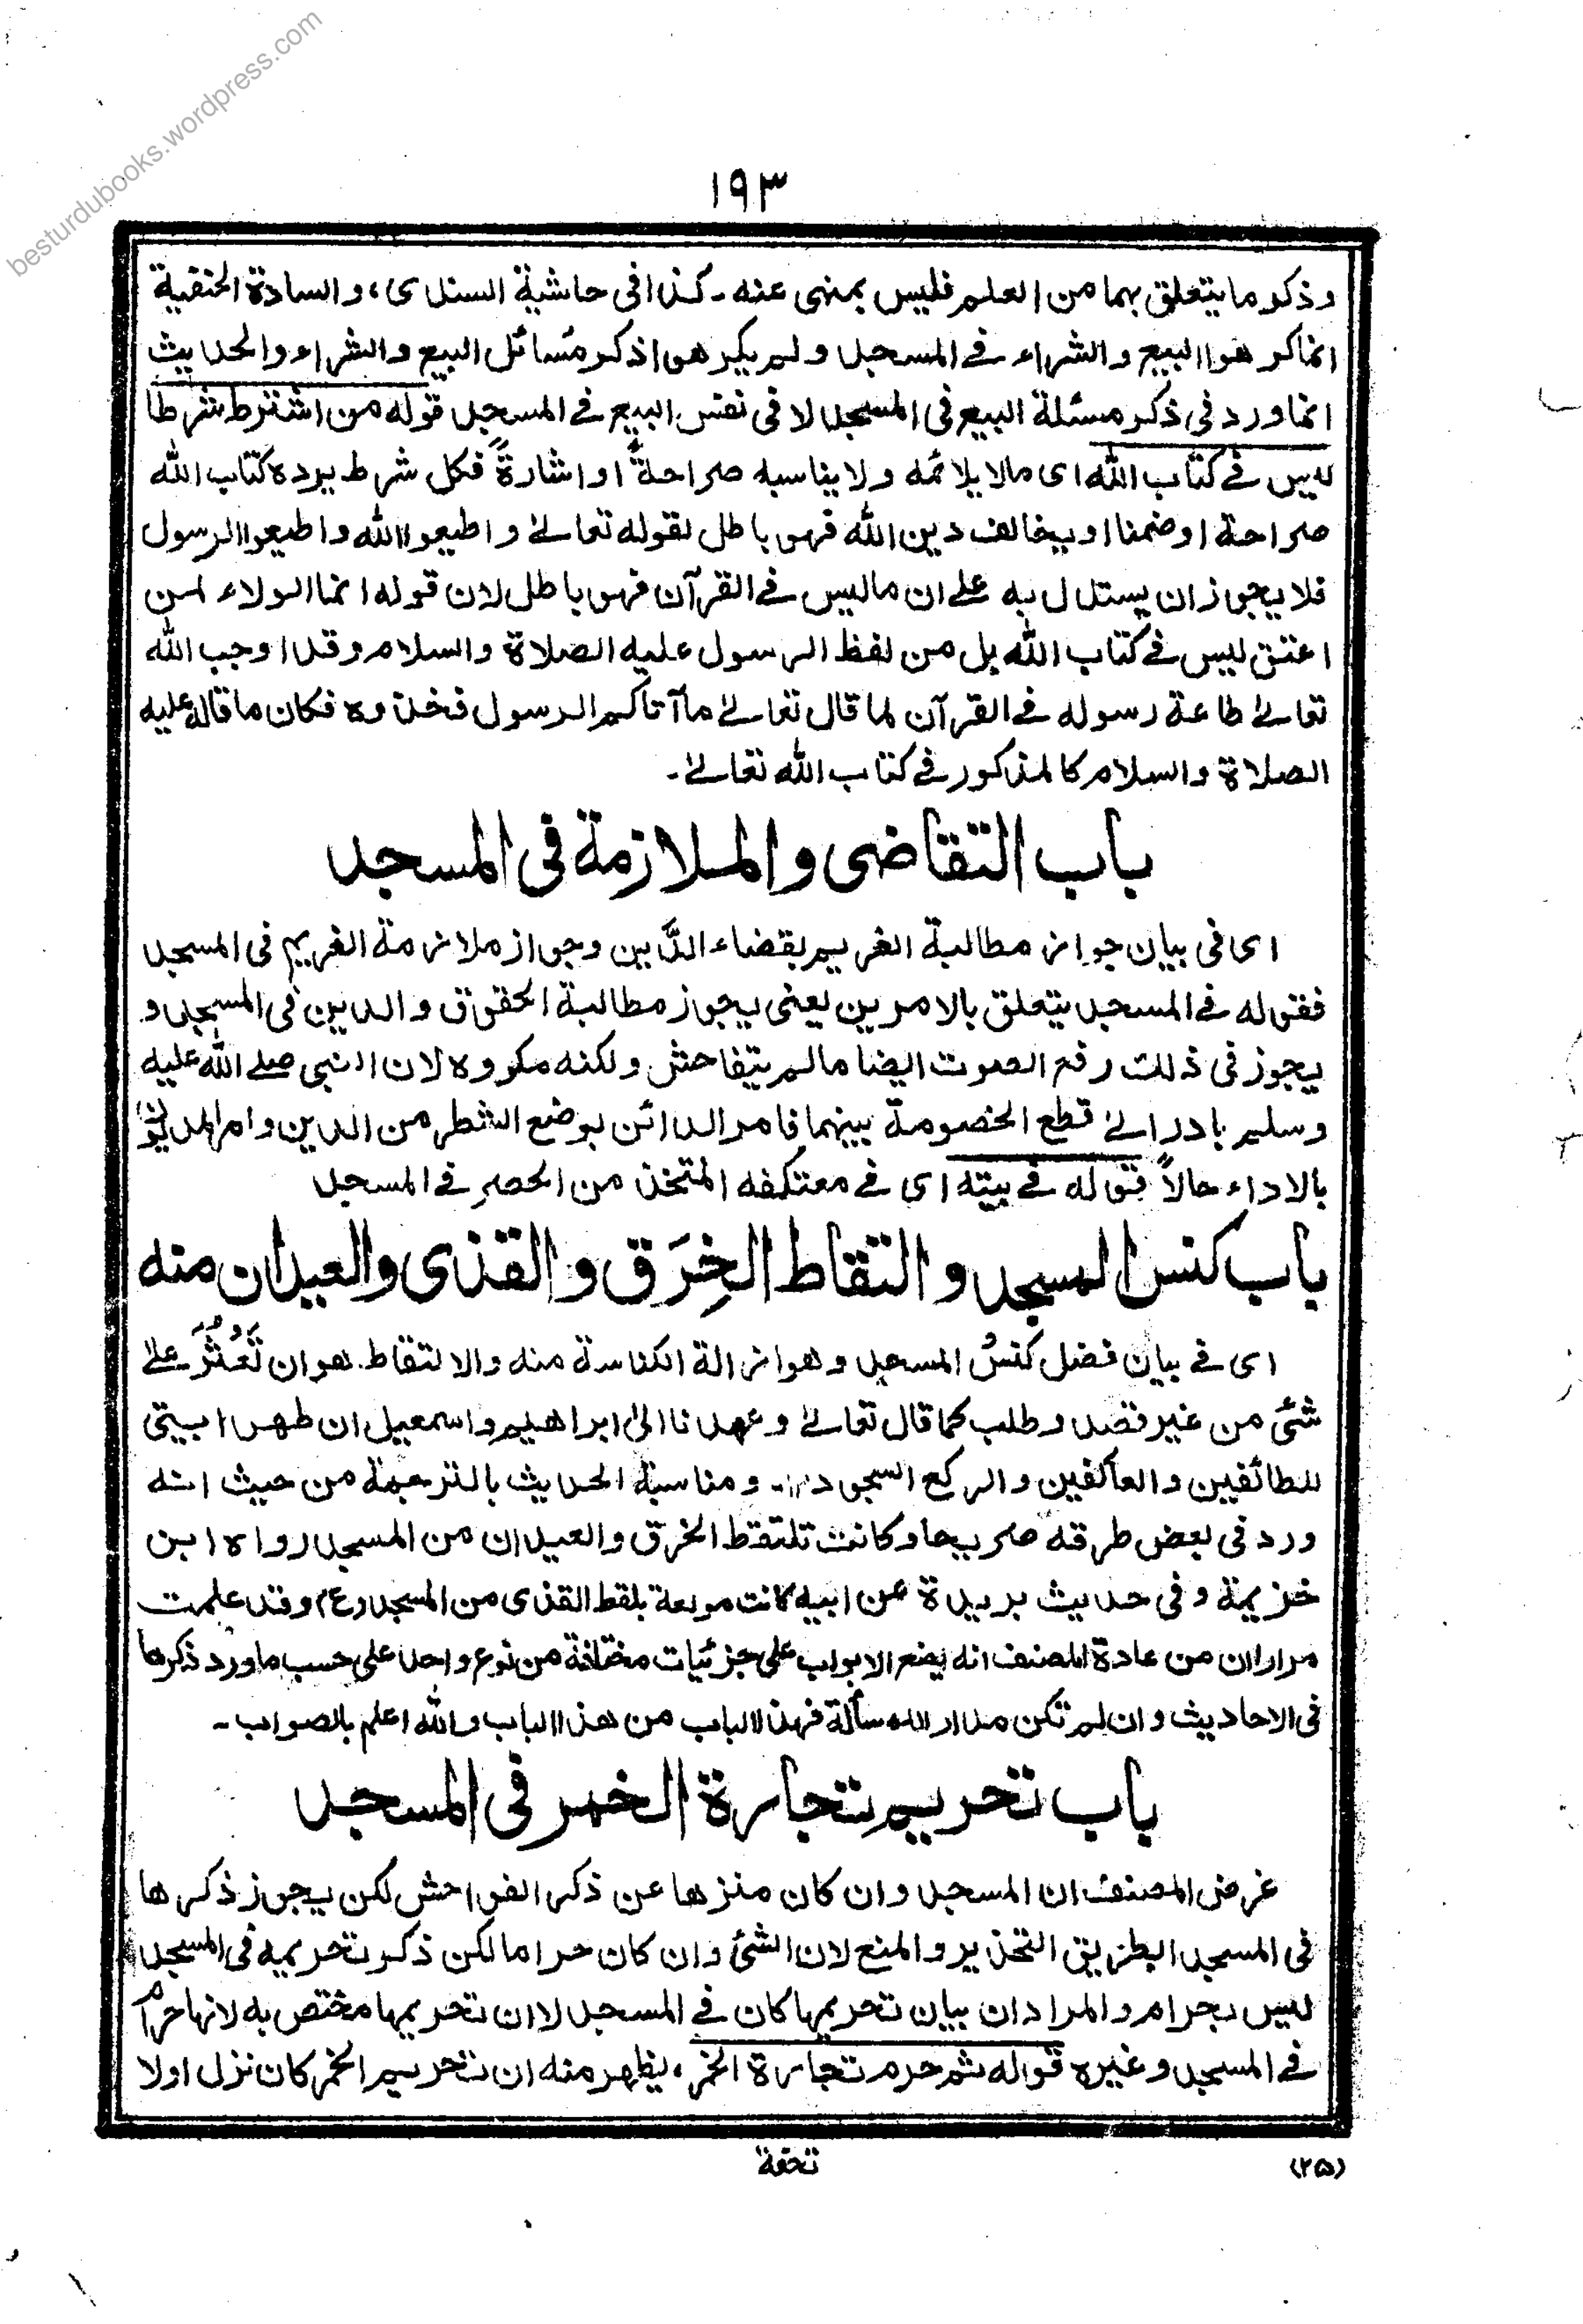 besturdubooks.wordpress.com
١٩٣
وذكر ما يتعلق بهما من العلم فليس بمنهى عنه ـ كذا فى حاشية السندى، والسادة الحنفية
انما كرهوا البيع والشراء فے المسجد ولم يكرهوا ذكر مسائل البيع والشراء والحديث
انما ورد فى ذكر مسئلة البيع فى المسجد لا فى نفس البيع فے المسجد قوله من اشترط شرطا
ليس فے كتاب الله اى مالا يلائمه ولا يناسبه صراحةً او اشارةً فكل شرط يرده كتاب الله
صراحة او ضمنا او يخالف دين الله فهو باطل لقوله تعالےٰ واطيعوا الله واطيعوا الرسول
فلا يجوز ان يستدل به علے ان ماليس فے القرآن فهو باطل لان قوله انما الولاء لمن
اعتق ليس فے كتاب الله بل من لفظ الرسول عليه الصلاة والسلام وقد اوجب الله
تعالےٰ طاعة رسوله فے القرآن لما قال تعالےٰ ما آتاكم الرسول فخذوه فكان ما قاله عليه
الصلاة والسلام كالمذكور فے كتاب الله تعالےٰ ـ
باب التقاضى والملازمة فى المسجد
اى فى بيان جواز مطالبة الغريم بقضاء الدَّين وجواز ملازمة الغريم فى المسجد
فقوله فے المسجد يتعلق بالامرين يعنى يجوز مطالبة الحقوق والدين فى المسجد و
يجوز فى ذلك رفع الصوت ايضا مالم يتفاحش ولكنه مكروه لان النبى صلے الله عليه
وسلم بادر الےٰ قطع الخصومة بينهما فامر الدائن بوضع الشطر من الدين وامر المديون
بالاداء حالاً قوله فے بيته اى فے معتكفه المتخذ من الحصر فے المسجد
باب كنس المسجد والتقاط الخِرَق والقذى والعيدان منه
اى فے بيان فضل كنس المسجد وهو ازالة الكناسة منه والالتقاط هو ان تَعْثُرَ علےٰ
شئ من غير قصد وطلب كما قال تعالےٰ وعهدنا الىٰ ابراهيم واسمعيل ان طهرا بيتى
للطائفين والعاكفين والركع السجود ومناسبة الحديث بالترجمة من حيث انه
ورد فى بعض طرقه صريحا وكانت تلتقط الخرق والعيدان من المسجد رواه ابن
خزيمة وفى حديث بريدة عن ابيه كانت مولعة بلقط القذى من المسجد (ع) وقد علمت
مرارا ان من عادة المصنف انه يضع الابواب على جزئيات مختلفة من نوع واحد على حسب ما ورد ذكرها
فى الاحاديث وان لم تكن مدار للمسألة فهذا الباب من هذا الباب والله اعلم بالصواب ـ
باب تحريم تجارة الخمر فى المسجد
غرض المصنف ان المسجد وان كان منزها عن ذكر الفواحش لكن يجوز ذكرها
فى المسجد البطريق التحذير والمنع لان الشئ وان كان حراما لكن ذكر تحريمه فى المسجد
ليس بحرام والمراد ان بيان تحريمها كان فے المسجد لا ان تحريمها مختص به لانها حرام
فے المسجد وغيره قوله ثم حرم تجارة الخمر، يظهر منه ان تحريم الخمر كان نزل اولا
(٢٥)
تحفة